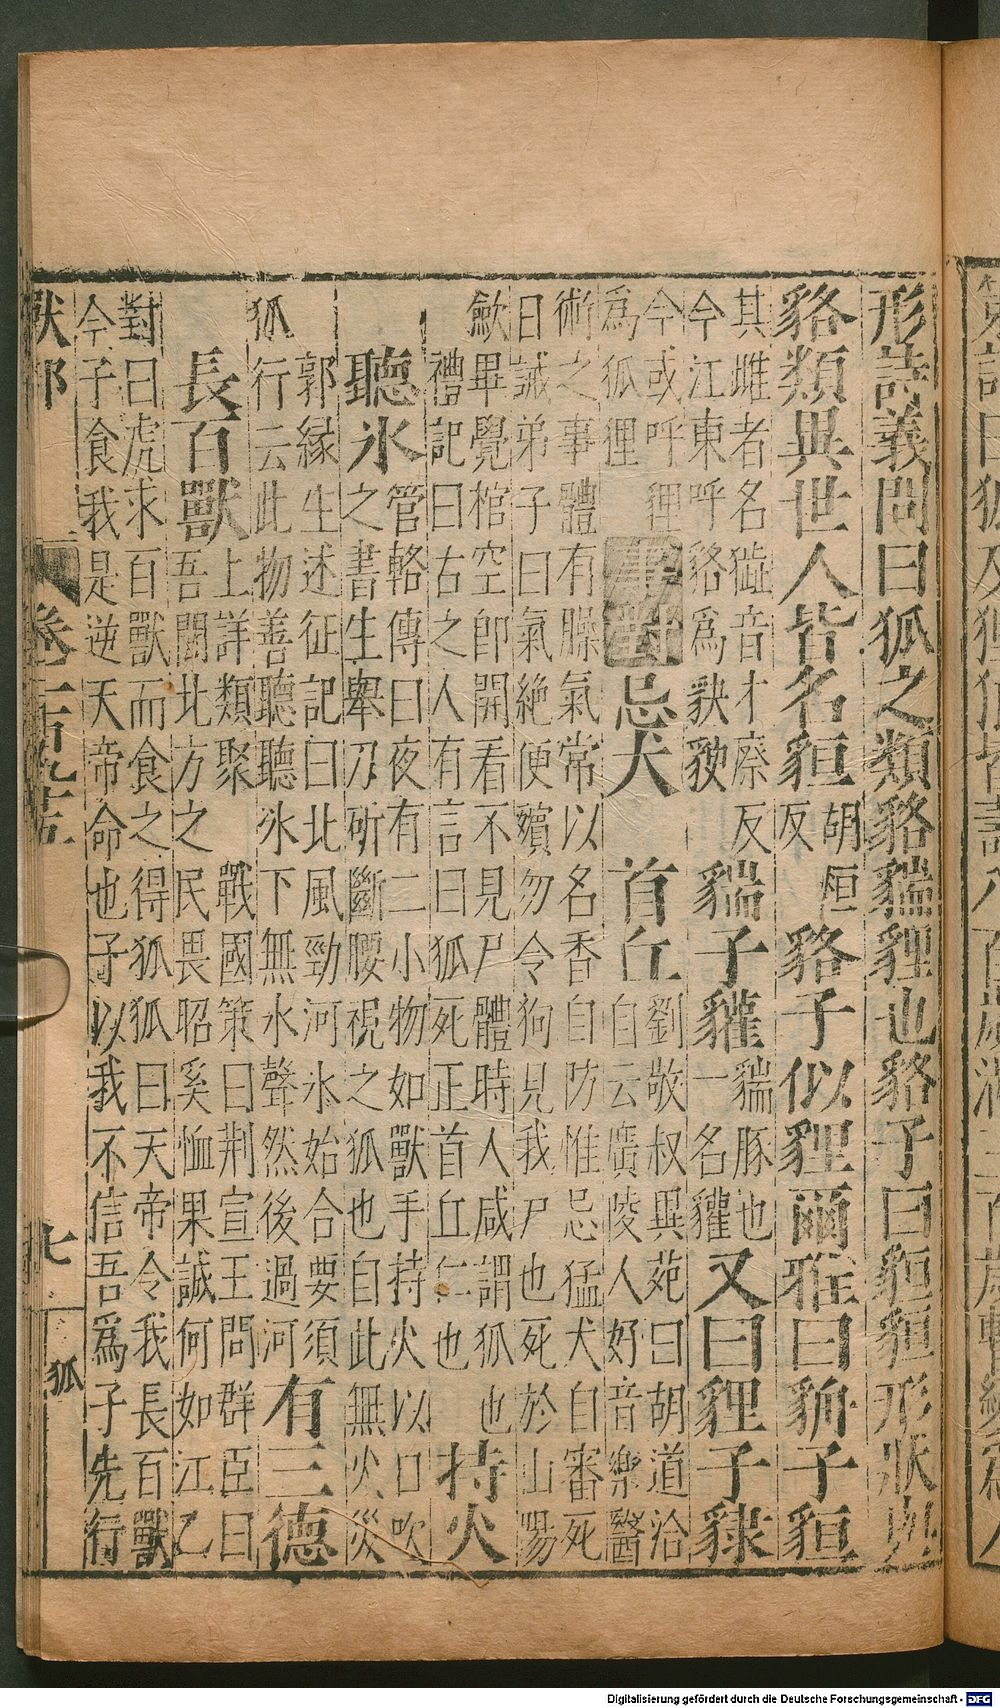 形詩義問曰狐之類貉貒貍也貉子曰貆貆形狀與
貉類異世人皆名貆
胡桓
反
貉子似貍爾雅曰貈子貆
音才廖反
其雌者名
今江東呼貉爲
貒子貛
貒豚也
一名貛
又曰貍子
今或呼貍
爲狐狸
事對
忌犬
首丘
劉敬叔異苑曰胡道洽
自云廣陵人好音樂醫
術之事體有臊氣常以名香自防惟忌猛犬自審死
日誡弟子曰氣絶便殯勿令狗見我尸也死於山陽
歛畢覺棺空即開看不見尸體時人咸謂狐也
禮記曰古之人有言曰狐死正首丘仁也
持火
聽氷
管輅傳曰夜有二小物如獸手持火以口吹
之書生舉刀斫斷腰視之狐也自此無火災
郭縁生述征記曰北風勁河氷始合要須
狐行云此物善聽聽氷下無水聲然後過河
有三德
長百獸
上詳類聚 戰國策曰荆宣王問群臣曰
吾聞北方之民畏昭奚恤果誠何如江乙
對曰虎求百獸而食之得狐狐曰天帝令我長百獸
今子食我是逆天帝命也子以我不信吾爲子先行
獸部
七
狐
Digitalisierung gefördert durch die Deutsche Forschungsgemeinschaft - DFG